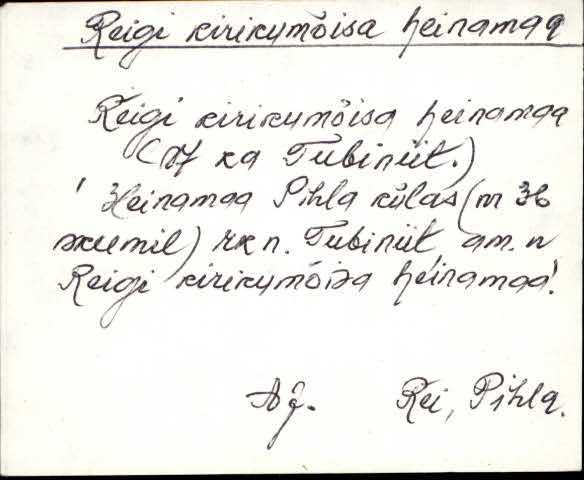 Reigi kirikumõisa heinamaa
Reigi kirikumõisa heinamaa
ka Tubiniit.)
Heinamaa Pihla külas
rkn. Tubiniit, am. n
Reigi kirikumõisa heinamaa!
Rei, Pihla.